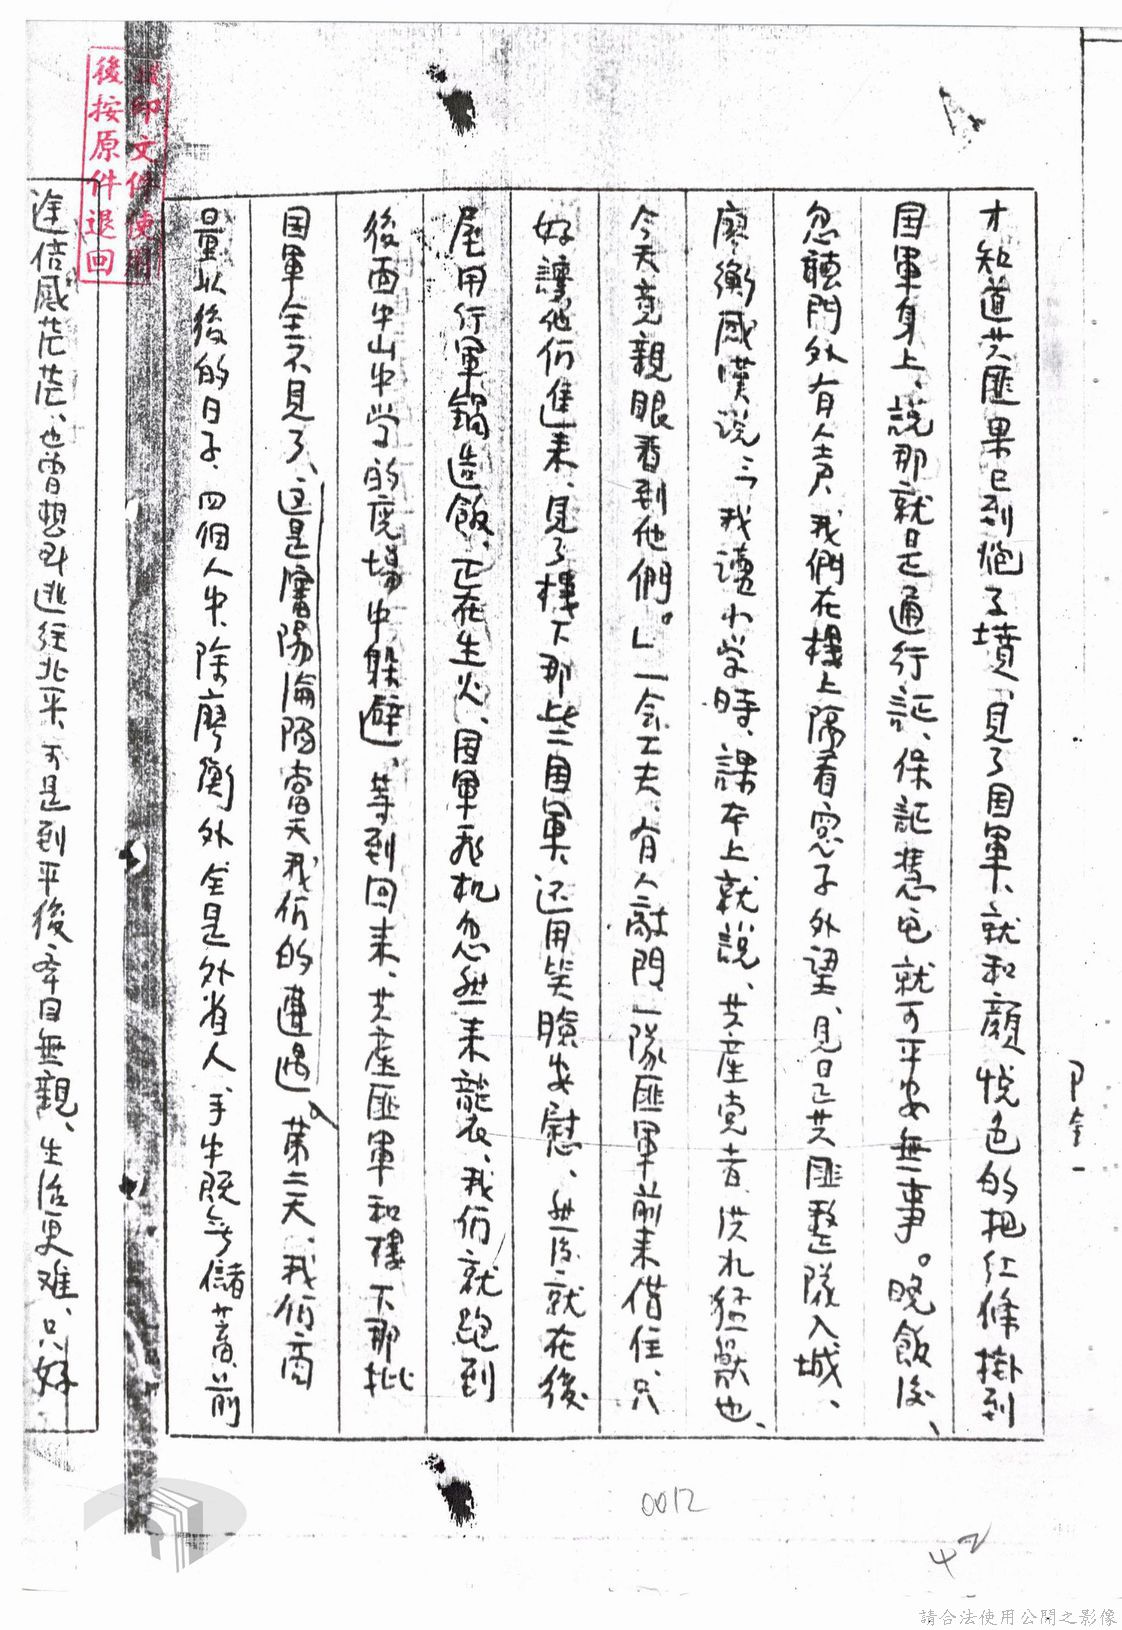 才知道共匪果已到炮了墳、見了国軍、就和顏悅色的把红條掛到
国軍身上、說那就是通行証、保証憑它就可平安無事。晚飯後、
忽聽門外有人声、我們在樓上隔着窓子外望、見是共匪整隊入城、
廖衡感嘆说：「我讀小学時、課本上就說、共產党者洪水猛獸也、
今天竟親眼看到他們。」一会工夫、有人敲門、一隊匪軍前来借住、只
好讓他们進来、見了樓下那些国軍、还用笑臉安慰、然後就在後
屋用行軍鍋造飯、正在生火、国軍飛机忽然来襲、我们就跑到
後面中山中学的廣場中躲避、等到回来、共產匪軍和樓下那批
国軍全不見了、这是瀋陽淪陷當天我们的遭遇。第二天、我们商
量以後的日子、四個人中、除廖衡外全是外省人、手中既無儲蓄、前
途倍感茫茫、也曾想到逃往北平、可是到平後舉目無親、生活更难、只好
0012
42
後按原件退回
印文件使用
請合法使用公開之影像